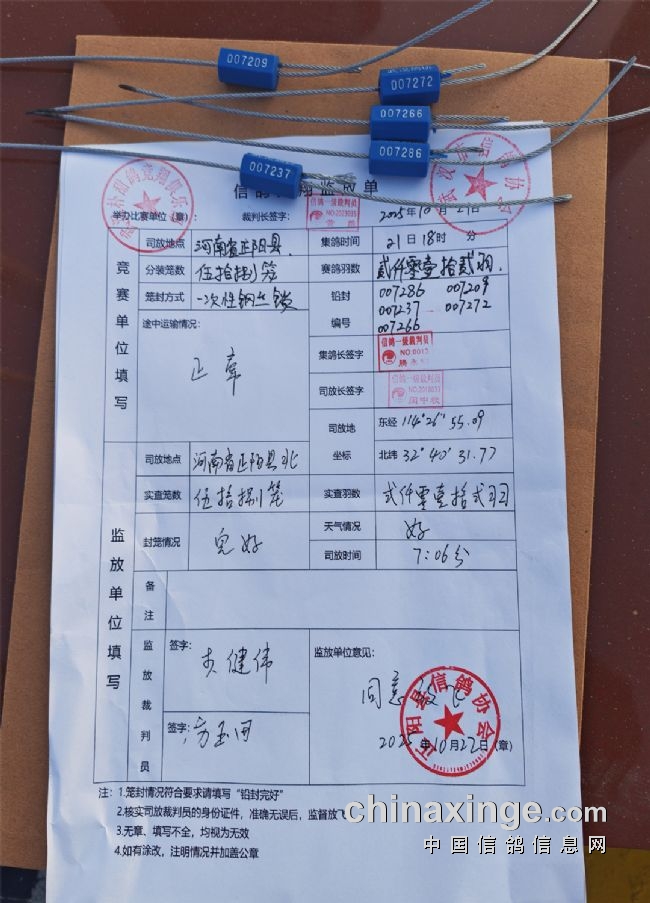 007209
007272
007266
007286
007237
信鸽竞翔监放单
举办比赛单位（章）： 裁判长签字： 2025年10月21日
竞赛单位填写
司放地点 河南省正阳县 集鸽时间 21日18时 分
分装笼数 伍拾捌笼 赛鸽羽数 贰仟零壹拾贰羽
笼封方式 一次性钢丝锁 铅封编号 007286 007209
007237 007272
007266
途中运输情况： 正常
集鸽长签字 信鸽一级裁判员
司放长签字 信鸽一级裁判员
司放地坐标 东经 114°26′55.09
北纬 32°40′31.77
监放单位填写
司放地点 河南省正阳县北
实查笼数 伍拾捌笼 实查羽数 贰仟零壹拾贰羽
封笼情况 完好 天气情况 好
司放时间 7:06分
备注
监放裁判员
签字： 健伟 监放单位意见：
同意放飞
签字：
正阳县信鸽协会
2025年10月22日（章）
注：1.笼封情况符合要求请填写“铅封完好”
2.核实司放裁判员的身份证件，准确无误后，监督放飞
3.无章、填写不全，均视为无效
4.如有涂改，注明情况并加盖公章
chinaxinge.com
中国信鸽信息网